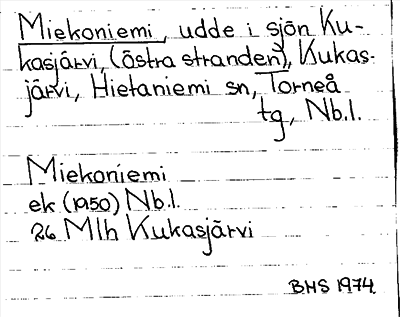 Miekoniemi, udde i sjön Ku-
kasjärvi, (östra stranden), Kukas-
järvi, Hietaniemi sn, Torneå
tg, Nb.l.
Miekoniemi
ek (1950) Nb.l.
26 Mlh Kukasjärvi
BHS 1974